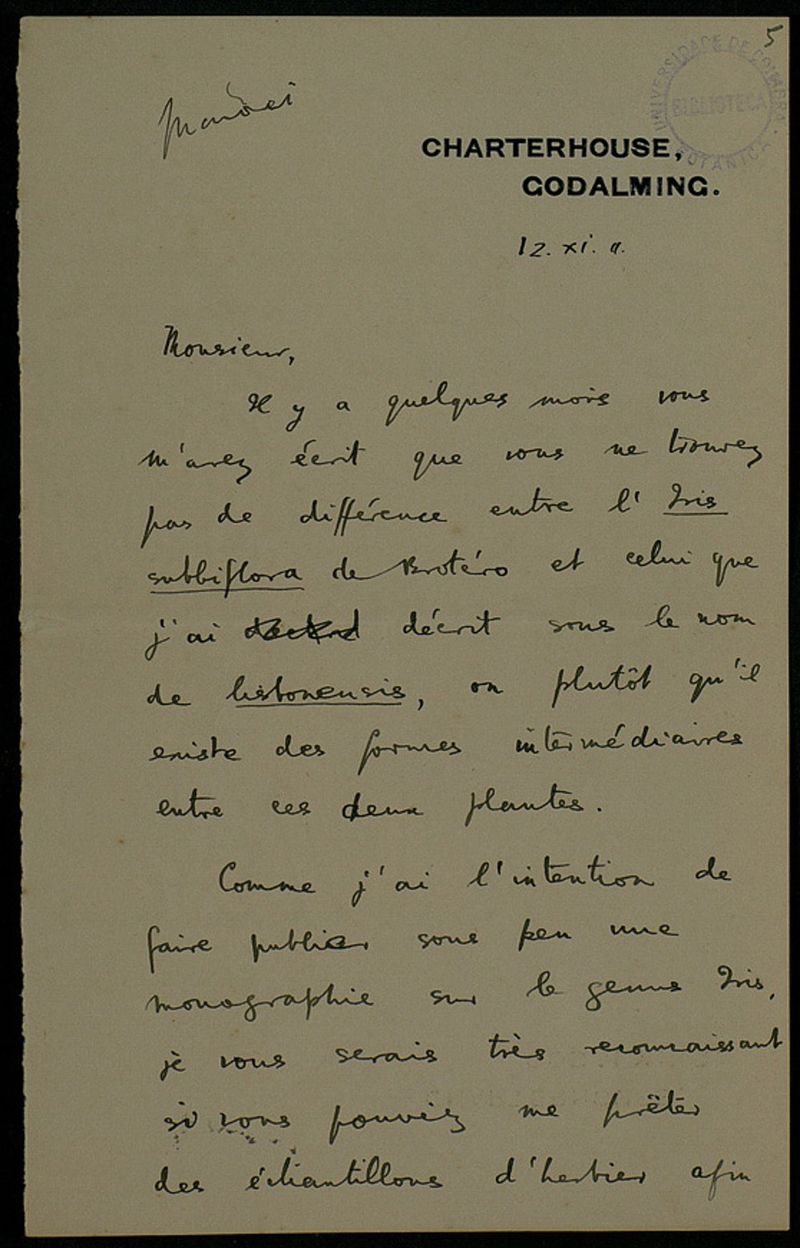 5
UNIVERSIDADE DE COIMBRA
BIBLIOTECA
BOTANICA
Mandei
CHARTERHOUSE,
GODALMING.
12. xi. 11.
Monsieur,
Il y a quelques mois vous
m'avez écrit que vous ne trouvez
pas de différence entre l'Iris
subbiflora de Brotéro et celui que
j'ai décrit sous le nom
de lisbonensis, ou plutôt qu'il
existe des formes intermédiaires
entre ces deux plantes.
Comme j'ai l'intention de
faire publier sous peu une
monographie sur le genus Iris,
je vous serais très reconnaissant
si vous pouviez me prêter
des échantillons d'herbier afin